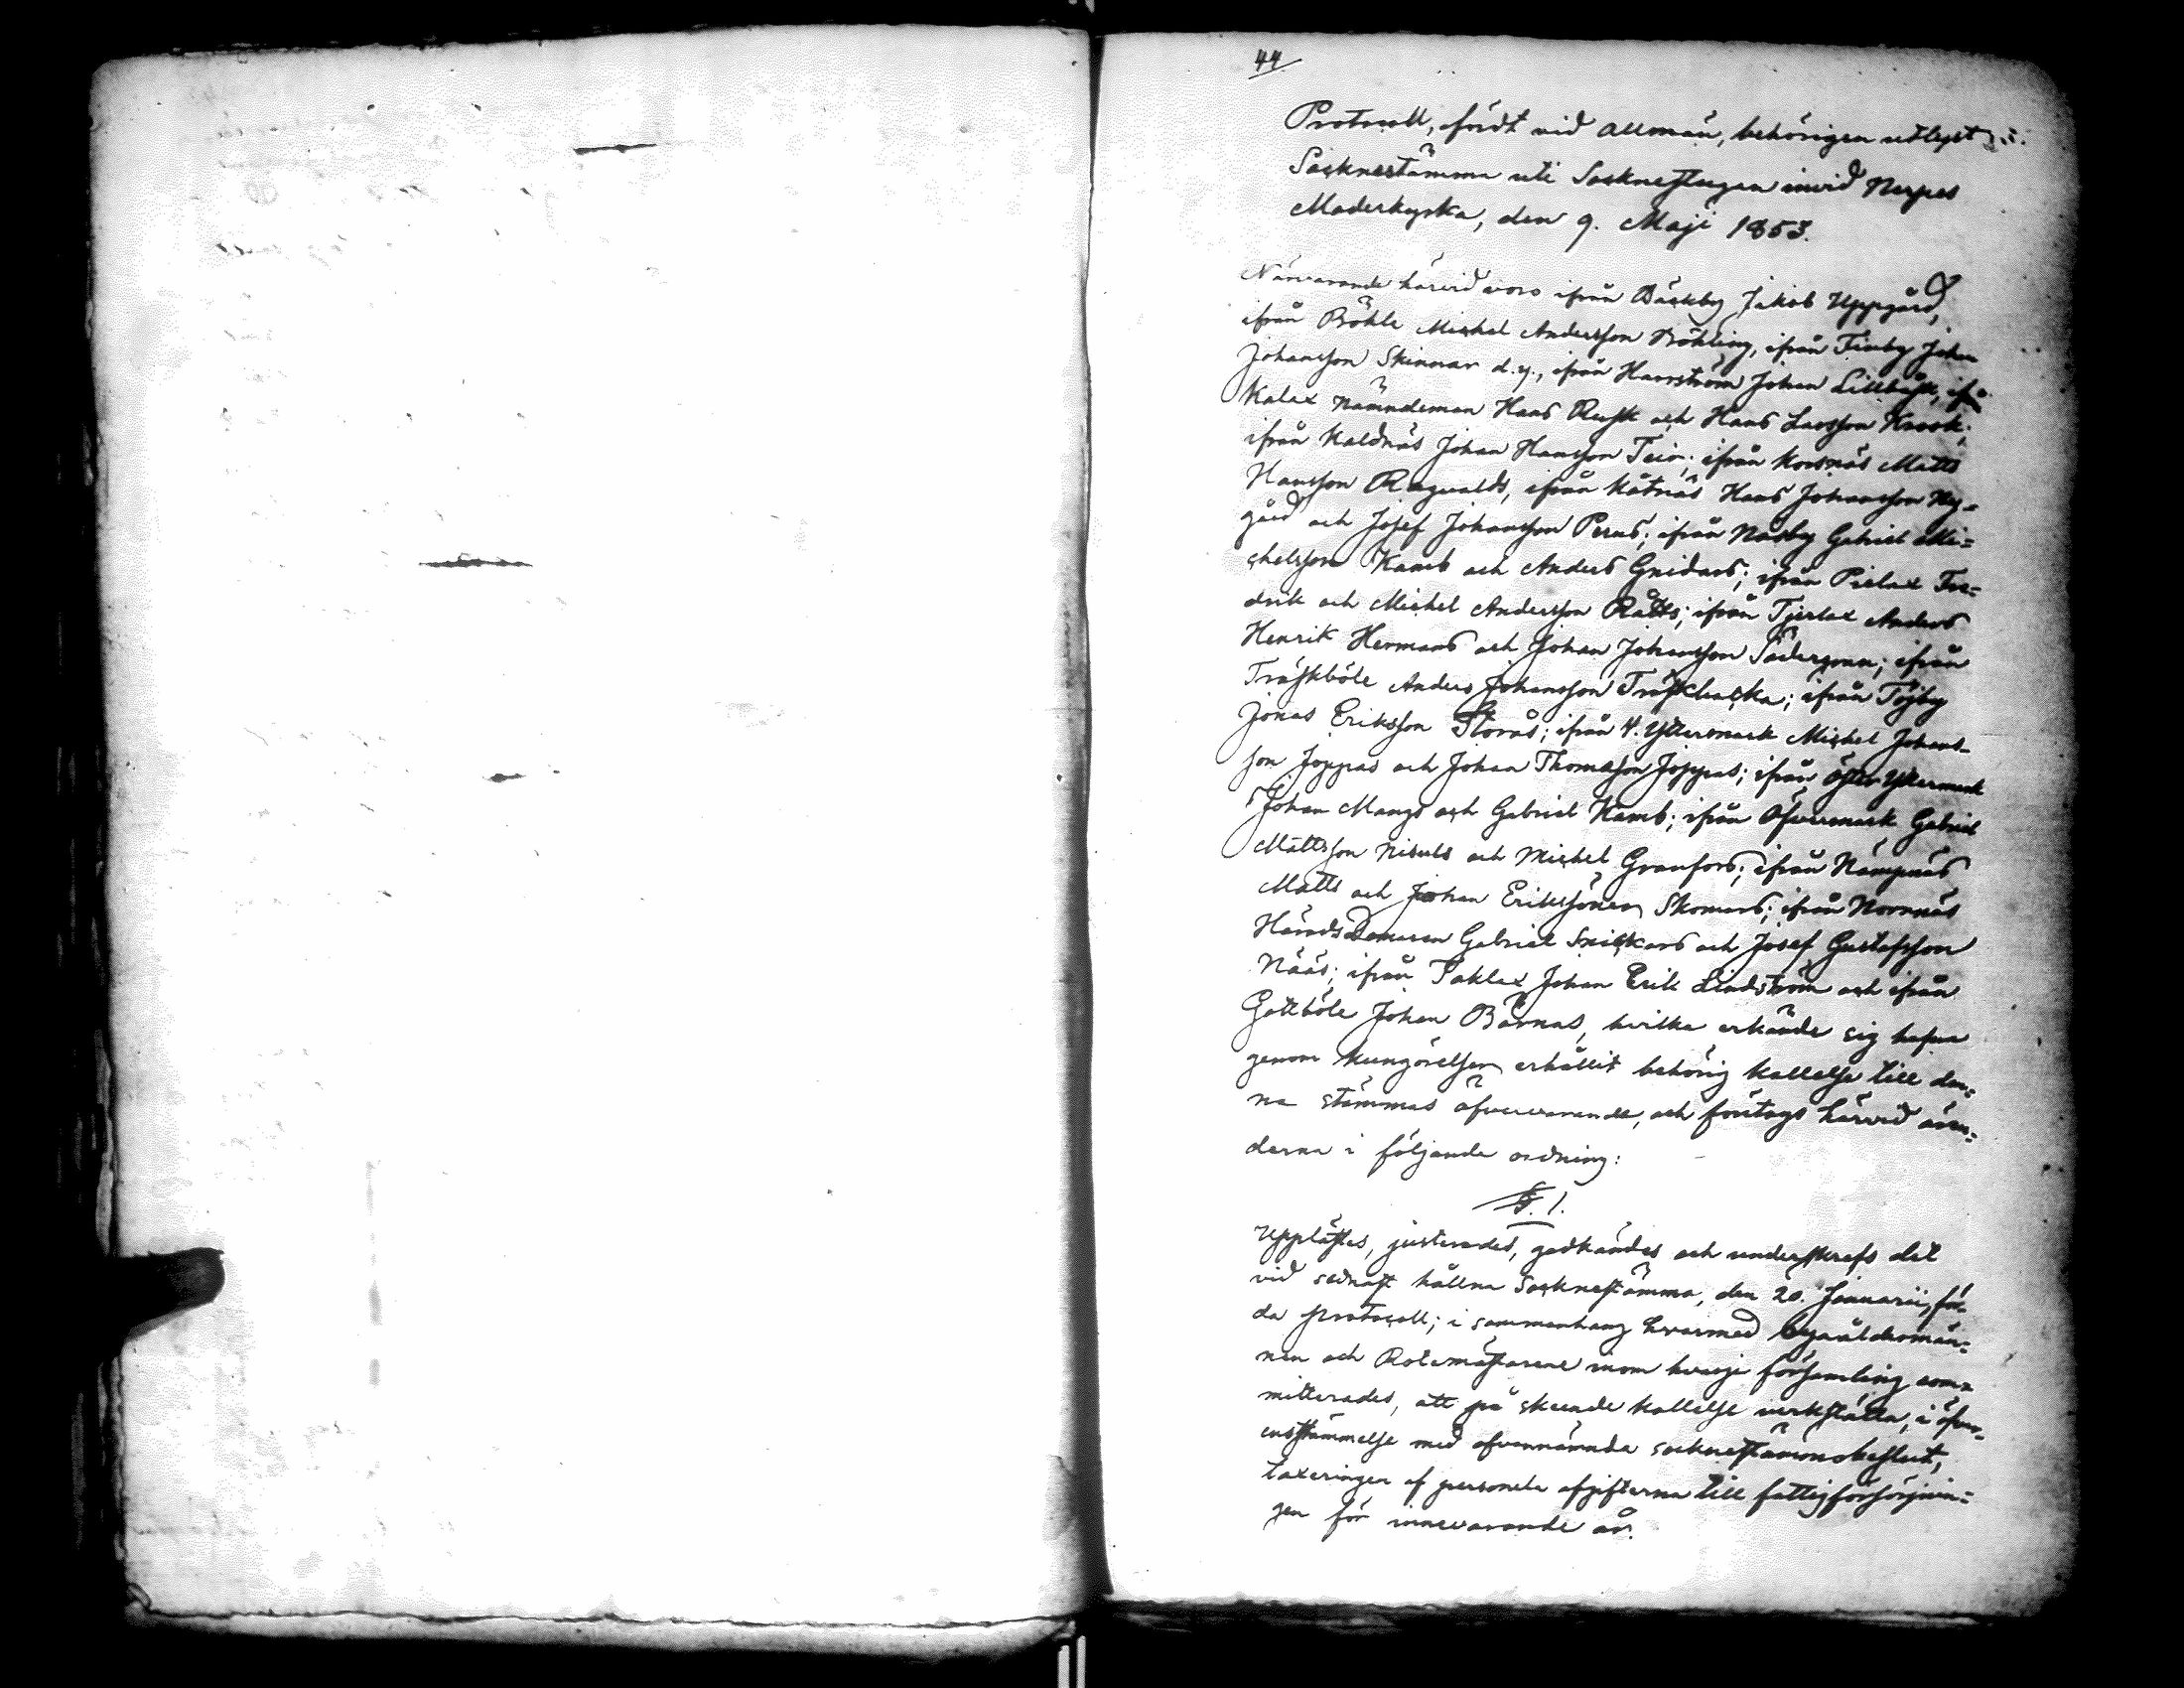 44.
Protocoll, fördt vid allmän, behörigen utlyst
Socknestämma uti Socknestugan invid Nerpes
Moderkyrka, den 9. Maji 1853.
Närvarande härvid voro ifrån Bäckby Jakob Uppgård,
ifrån Böhle Michel Andersson Böhling, ifrån Finby Johan
Johansson Skinnar d.y., ifrån Harrström Johan Lillbåsk, ifrån
Kalax Nämndeman Hans Rusk och Hans Larsson Krook;
ifrån Kaldnäs Johan Hansson Teir; ifrån Korsnäs Matts
Hansson Ragvalds, ifrån Kåtnäs Hans Johansson Ny-
gård och Josef Johansson Perus; ifrån Näsby Gabriel Mi-
chelsson Kamb och Anders Gnidars; ifrån Pielax Fre-
drik och Michel Andersson Rätts; ifrån Tjerlax Anders
Henrik Hermans och Johan Johansson Södergran; ifrån
Träskböle Anders Johansson Träskbacka; ifrån Töjby
Jonas Eriksson Storås; ifrån V. Yttermark Michel Johans-
son Joppas och Johan Thomasson Joppas; ifrån Öster Yttermark
Johan Mangs och Gabriel Kamb; ifrån Öfvermark Gabriel
Mattsson Nisuls och Michel Granfors; ifrån Nämpnäs
Matts och Johan Erikssöner Skomars; ifrån Norrnäs
HäradsDomaren Gabriel Snickars och Josef Gustafsson
Nääs; ifrån Taklax Johan Erik Lindström och ifrån
Gottböle Johan Bärnas, hvilka erkände sig hafva
genom kungörelsen erhållit behörig kallelse till den-
na stämmas öfvervarande, och företogs härvid ären-
derna i följande ordning:
§. 1.
Upplästes, justerades, godkändes och underskrefs det
vid sednast hållna Socknestämma, den 20. Januarii, för-
da protocoll; i sammanhang hvarmed byaåldermän-
nen och Rotemästarene inom hvarje församling com-
mitterades, att på skeende kallelse verkställa, i öfver-
ensstämmelse med ofvannämnda socknestämmobeslut,
taxeringen af personela afgifterna till fattigförsörjnin-
gen för innevarande år.